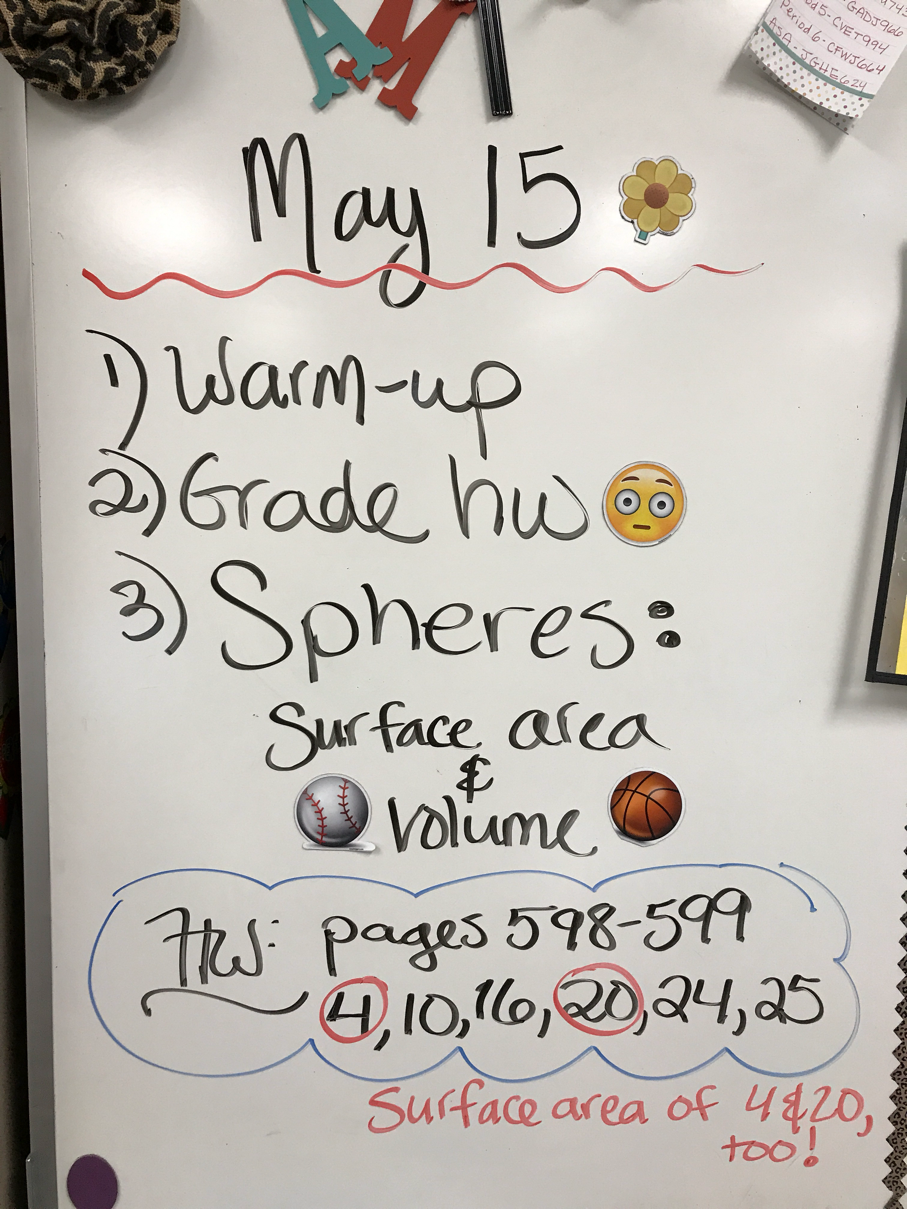 AM
GADJ966
Period 5-CVET994
Period 6-CFWJ664
ASA-JGHE624
May 15
1) Warm-up
2) Grade hw
3) Spheres:
Surface area
&
Volume
HW: pages 598-599
4, 10, 16, 20, 24, 25
Surface area of 4 & 20,
too!